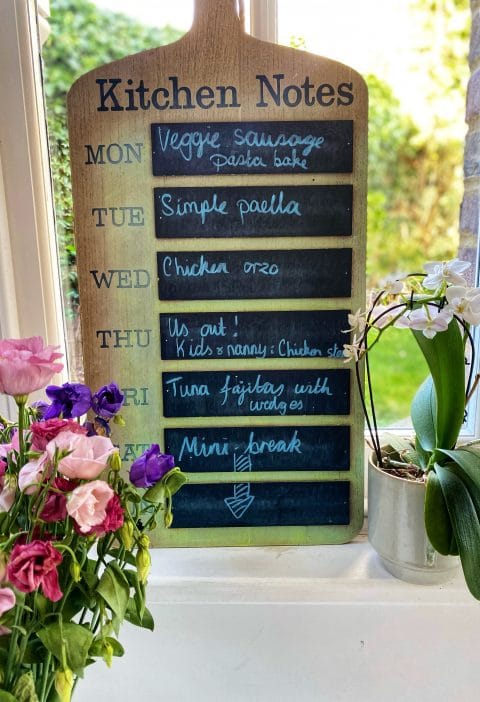 Kitchen Notes
MON
Veggie sausage
pasta bake
TUE
Simple paella
WED
Chicken orzo
THU
Us out!
Kids & nanny: Chicken
RI
Tuna fajitas with
wedges
AT
Mini-break